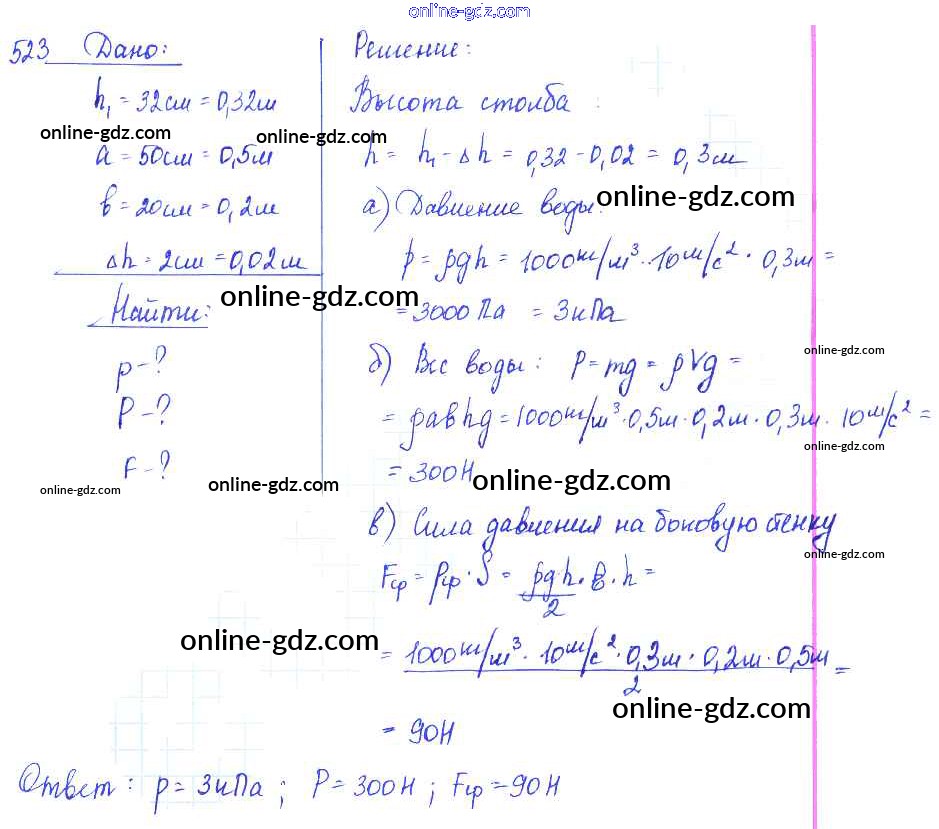 online-gdz.com
523 Дано:
h₁ = 32см = 0,32м
online-gdz.com
a = 50см = 0,5м
в = 20см = 0,2м
Δh = 2см = 0,02м
Найти:
p - ?
P - ?
F - ?
online-gdz.com
Решение:
Высота столба :
online-gdz.com
h = h₁ - Δh = 0,32 - 0,02 = 0,3м
а) Давление воды:
online-gdz.com
p = ρgh = 1000кг/м³ · 10м/с² · 0,3м =
online-gdz.com
= 3000 Па = 3кПа
online-gdz.com
б) Вес воды: P = mg = ρVg =
= ρaвhg = 1000кг/м³ · 0,5м · 0,2м · 0,3м · 10м/с² =
online-gdz.com
= 300Н
online-gdz.com
online-gdz.com
в) Сила давления на боковую стенку
online-gdz.com
Fср = pср · S = ρgh/2 · в · h =
online-gdz.com
= 1000кг/м³ · 10м/с² · 0,3м · 0,2м · 0,5м / 2 =
online-gdz.com
= 90Н
Ответ: p = 3кПа ; P = 300Н ; Fср = 90Н